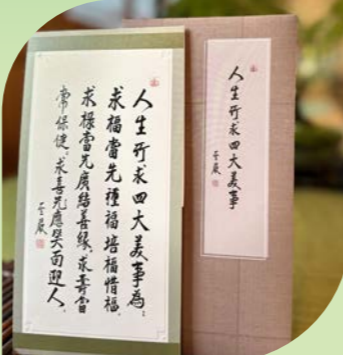 人生所求四大美事為：
求福當先種福培福惜福，
求祿當先廣結善緣，求壽當
常保健，求喜先應笑面迎人。
星雲
人生所求四大美事
星雲